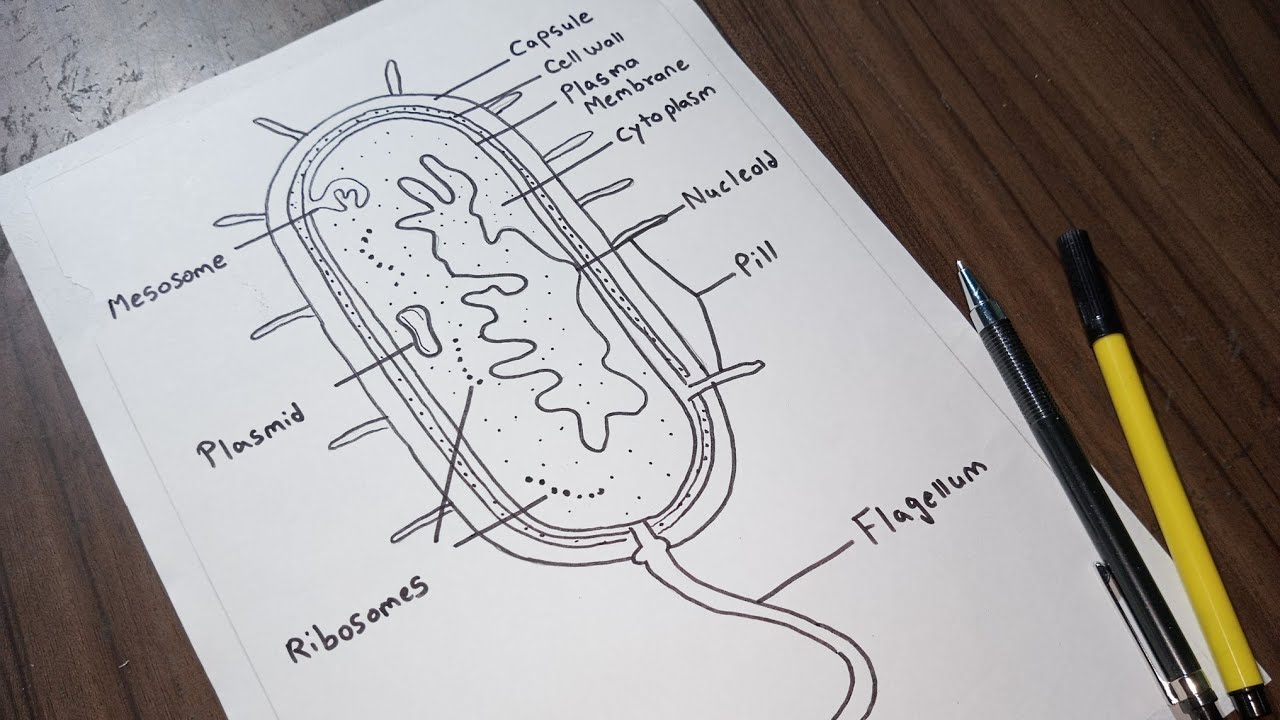 Capsule
Cell Wall
Plasma
Membrane
Cytoplasm
Nucleoid
Pili
Mesosome
Plasmid
Ribosomes
Flagellum